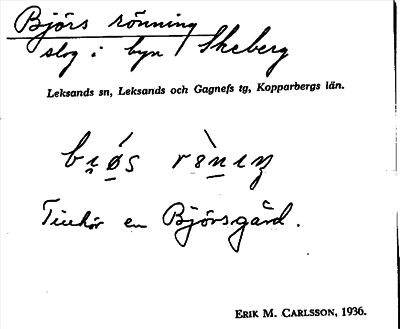 Björs rönning
slog i byn Skeberg
Leksands sn, Leksands och Gagnefs tg, Kopparbergs län.
Tillhör en Björsgård.
ERIK M. CARLSSON, 1936.